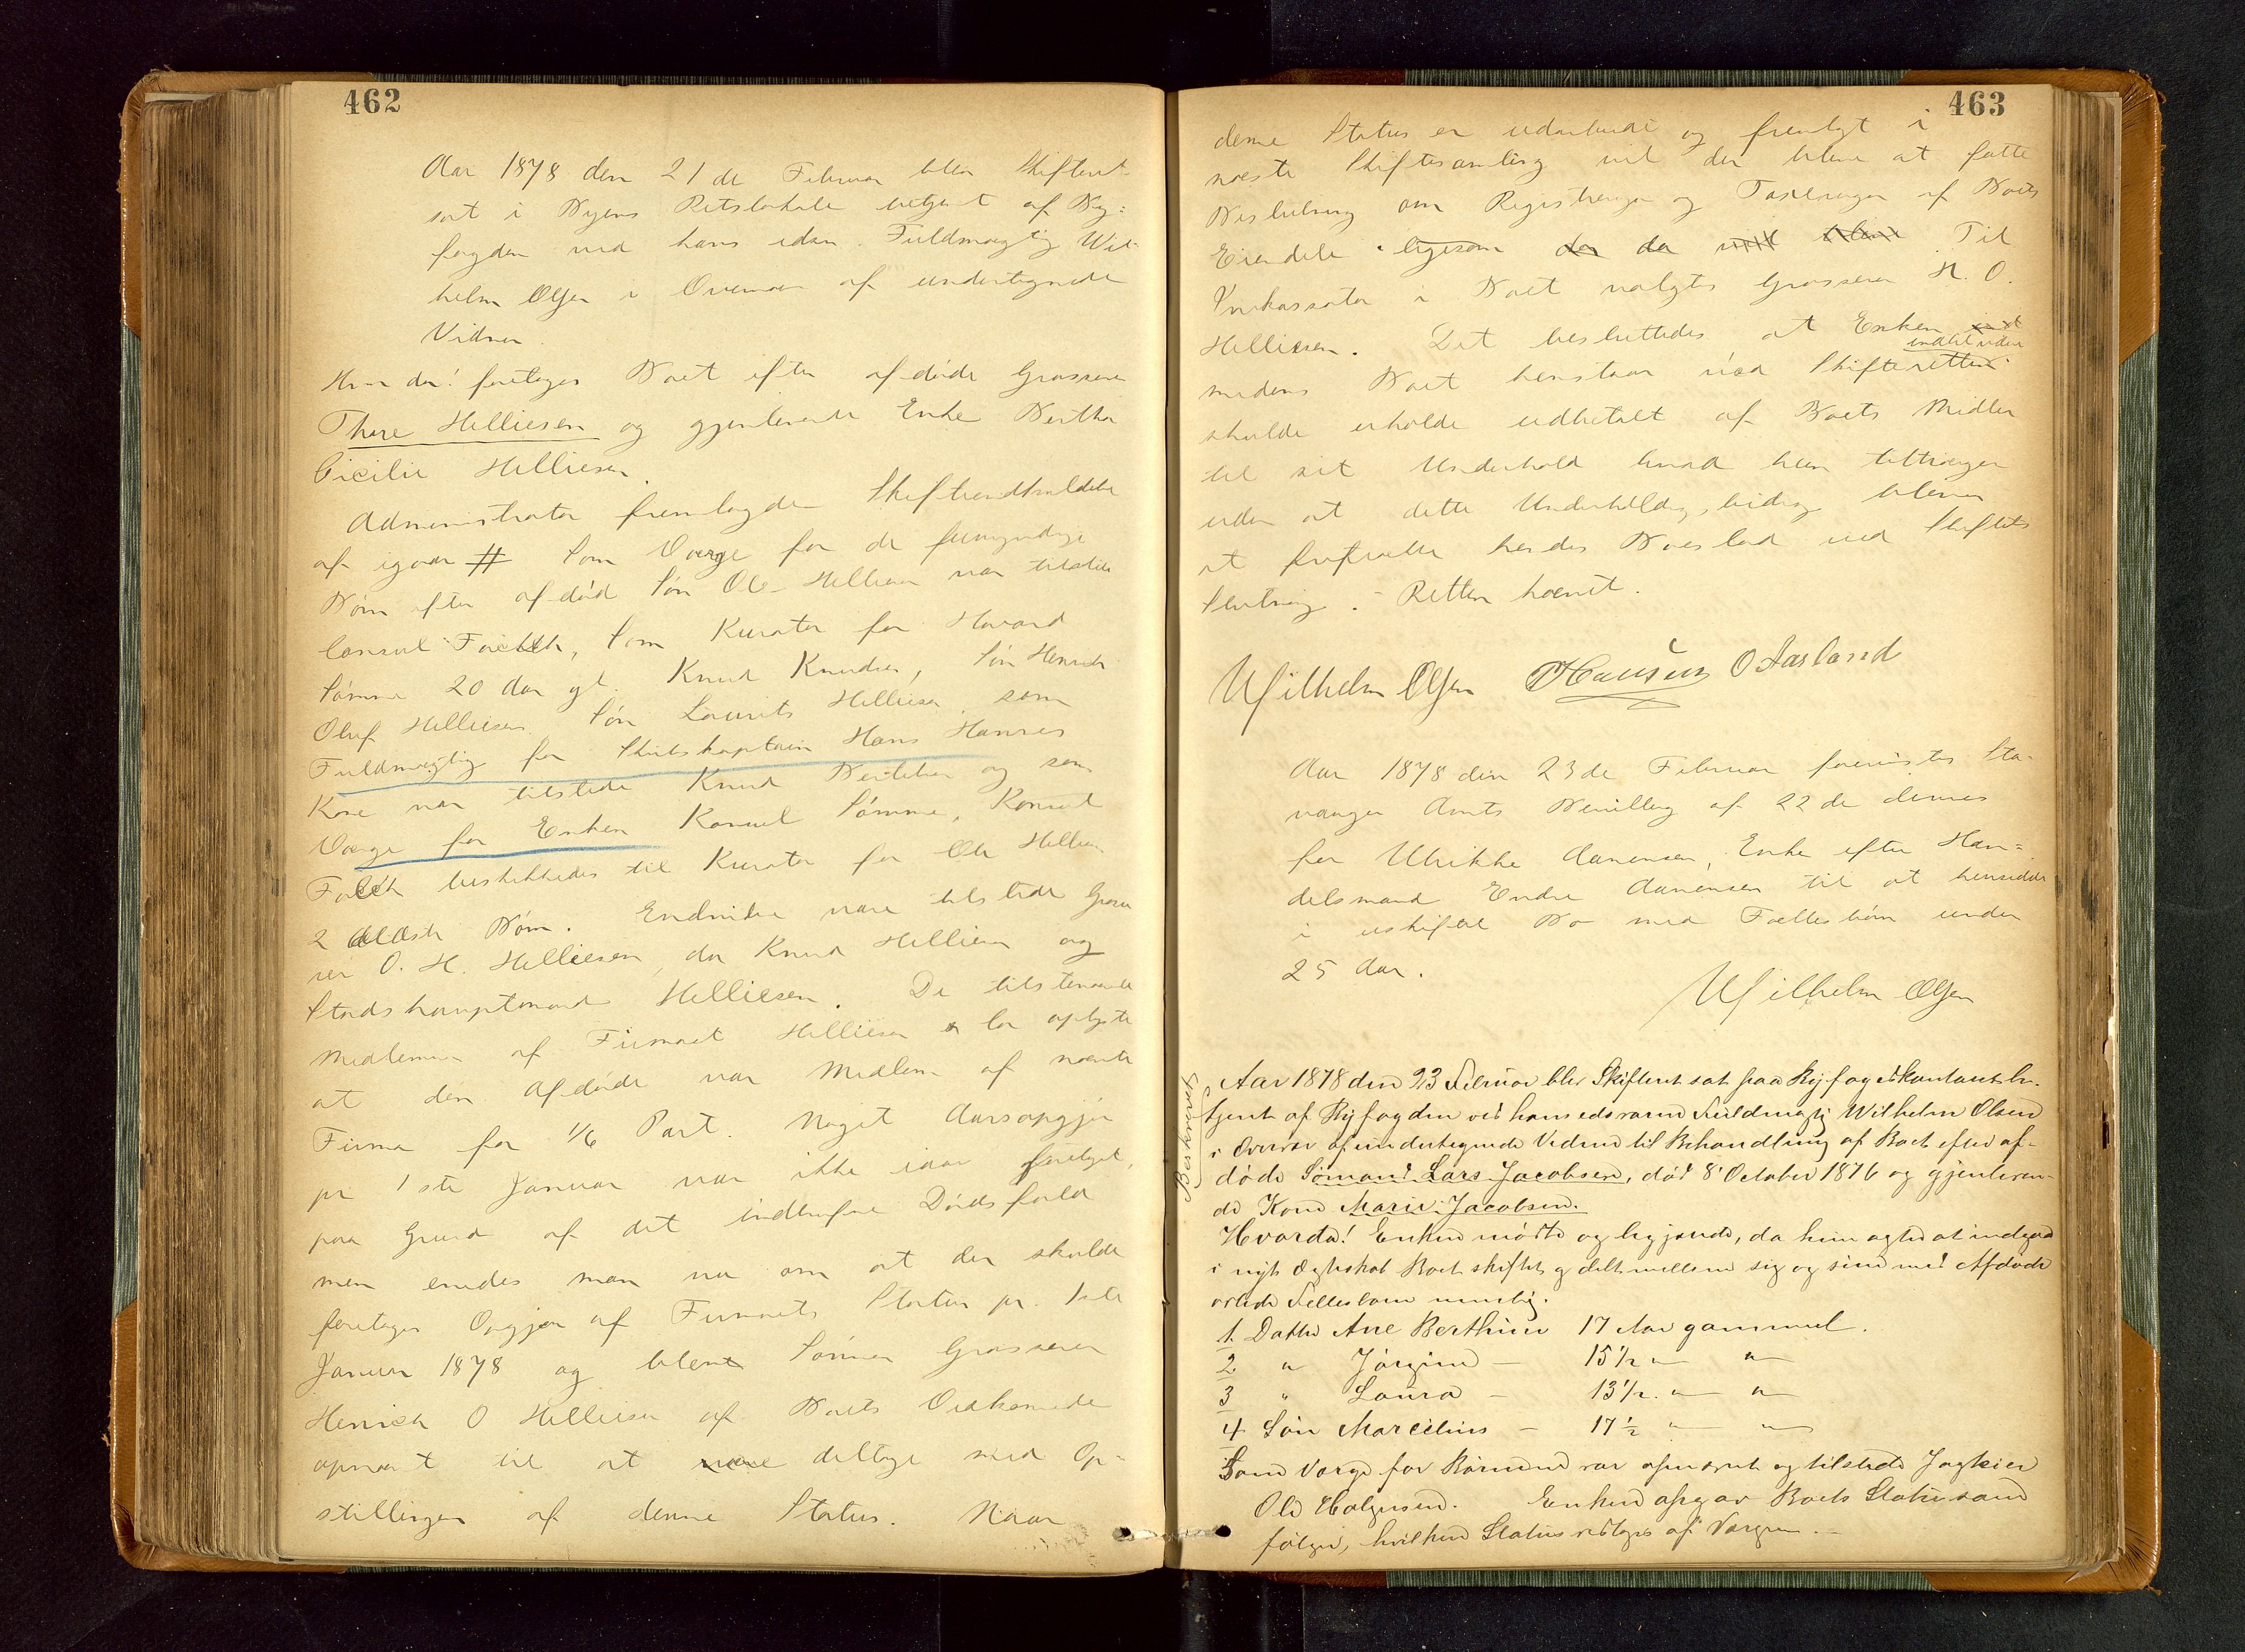 462
Aar 1878 den 21de Februar blev Skifteret
sat i Byens Retslokale betjent af By-
fogden ved hans edsv. Fuldmægtig Wil-
helm Olsen i Overvær af undertegnede
Vidner.
Hvor da! foretoges Boet efter afdøde Grosserer
Thore Helliesen og gjenlevende Enke Bertha
Cicilie Helliesen.
Administrator fremlagde Skifteindkaldelse
af igaar # Som Værge for de umyndige
Børn efter afdød Søn Ole Helliesen var tilstede
Consul Falck, som Kurator for Havard
Sømme 20 Aar gl. Knud Knudsen, Søn Henrik
Oluf Helliesen Søn Laurits Helliesen, som
Fuldmægtig for Skibskaptein Hans Hansens
Kone var tilstede Knud Bertelsen og som
Værge for Enken Konsul Sømme, Konsul
Falck beskikkedes til Kurator for Ole Helliesens
2 ældste Børn. Endvidere vare tilstede Grosse
rer O. H. Helliesen, do Knud Helliesen og
Stadshauptmand Helliesen. De tilstedeværende
Medlemmer af Firmaet Helliesen & Co oplyste
at den Afdøde var Medlem af nævnte
Firma for 1/6 Part. Noget Aarsopgjør
pr 1ste Januar var ikke iaar foretaget,
paa Grund af det indtrufne Dødsfald
men enedes man nu om at der skulde
foretages Opgjør af Firmaets Status pr. 1ste
Januar 1878 og blev Sønnen Grosserer
Henrich O Helliesen af Boets Vedkommende
opnævnt til at være deltage med Op-
stillingen af denne Status. Naar
463
denne Status er udarbeidet og fremlagt i
næste Skiftesamling vil der blive at fatte
Beslutning om Registrering og Taxering af Boets
Eiendele ligesom der da vil blive Til
Inkassator i Boet valgtes Grosserer H. O.
Helliesen. Det besluttedes at Enken ind
indtil videre
medens Boet henstaar ved Skifteretten
skulde erholde udbetalt af Boets Midler
til sit Underhold hvad hun tiltrænger
uden at dette Underholdsbidrag bliver
at fratrække hendes Boeslod ved Skiftets
Slutning. - Retten hævet.
Wilhelm Olsen Hansen O Aarsland
Aar 1878 den 23de Februar forevistes Sta-
vanger Amts Bevilling af 22de dennes
for Ulrikke Aanensen, Enke efter Han-
delsmand Endre Aanensen til at hensidde
i uskiftet Bo med Fællesbørn under
25 Aar.
Wilhelm Olsen
Beskrevet
Aar 1878 den 23 Februar blev Skifteret sat paa Byfogedkontoret be-
tjent af Byfogden ved hans edsvorne Fuldmægtig Wilhelm Olsen
i Overvær af undertegnede Vidner til Behandling af Boet efter af-
døde Sømand Lars Jacobsen, død 8 October 1876 og gjenleven-
de Kone Marie Jacobsen.
Hvorda! Enken mødte og begjærede, da hun agted at indgaa
i nyt Ægteskab Boet skiftet og delt mellem sig og sine med Afdøde
avlede Fellesbørn nemlig.
1. Datter Ane Berthine 17 Aar gammel.
2 " Jørgine - 15 1/2 " "
3 " Laura - 13 1/2 " "
4 Søn Marcelius - 17 1/2 " "
Som Værge for Børnene var opnævnt og tilstede
Ole Helgesen. Enken opgav Boets Status som
følger, hvilken Status vedtoges af Værgen. -